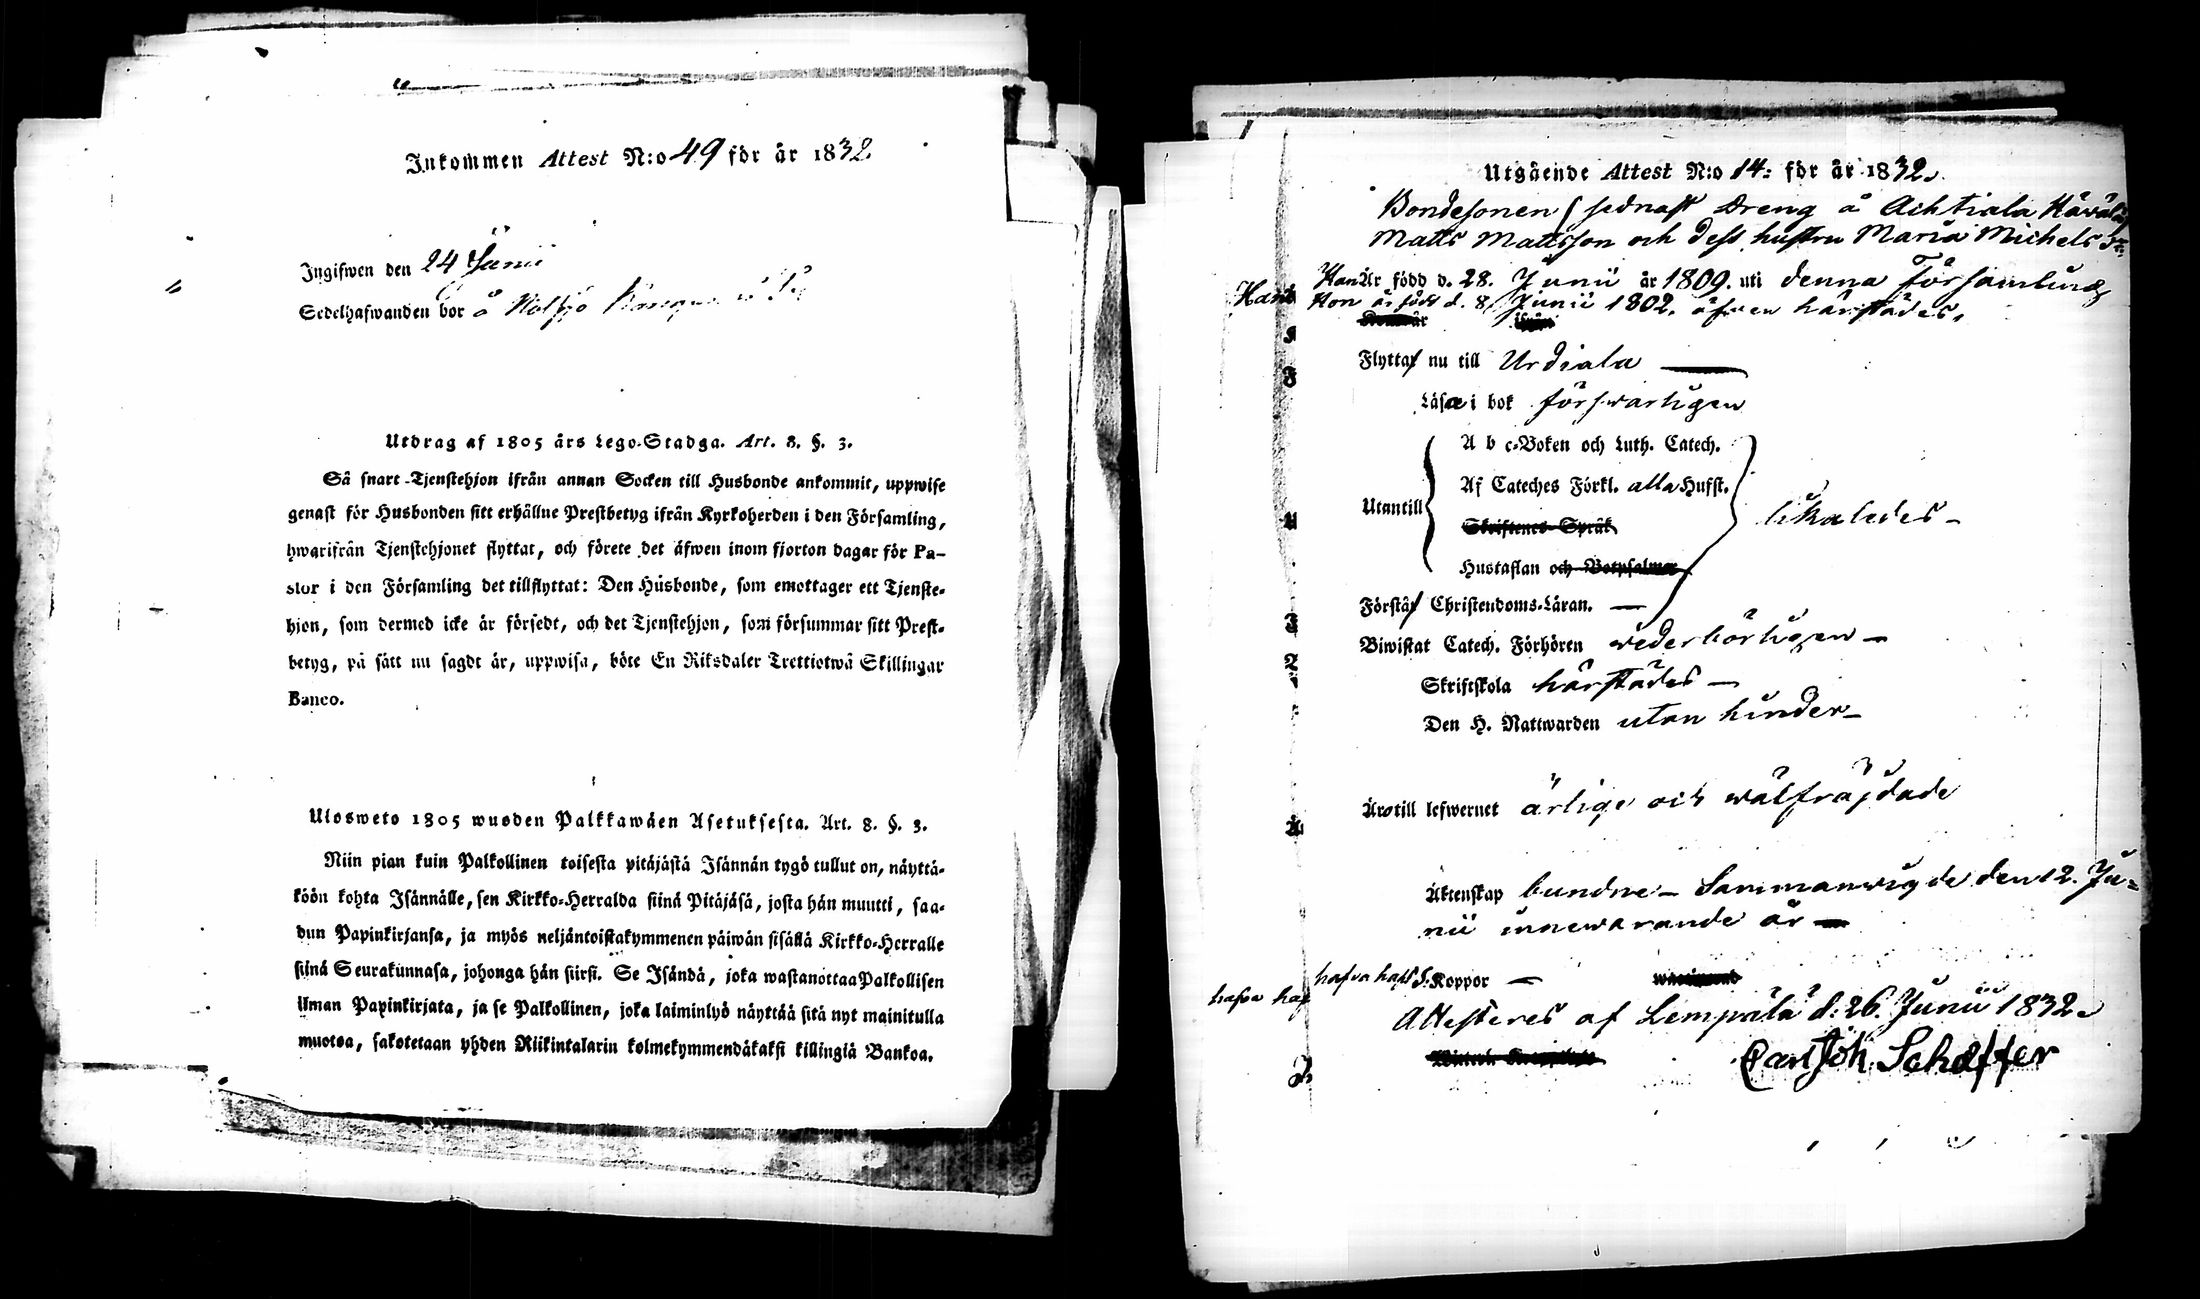 Inkommen Attest N:o 49 för år 1832.
Ingifwen den 24 Junii
Sedelhafwanden bor å
Utdrag af 1805 års Lego-Stadga. Art. 8. §. 3.
Så snart Tjenstehjon ifrån annan Socken till Husbonde ankommit, uppwise
genast för Husbonden sitt erhållne Prestbetyg ifrån Kyrkoherden i den Församling,
hwarifrån Tjenstehjonet flyttat, och förete det äfwen inom fjorton dagar för Pa-
stor i den Församling det tillflyttat: Den Husbonde, som emottager ett Tjenste-
hjon, som dermed icke är försedt, och det Tjenstehjon, som försummar sitt Prest-
betyg, på sätt nu sagdt är, uppwisa, böte En Riksdaler Trettiotwå Skillingar
Banco.
Ulosweto 1805 wuoden Palkkawäen Asetuksesta. Art. 8. §. 3.
Niin pian kuin Palkollinen toisesta pitäjästä Isännän tygö tullut on, näyttä-
köön kohta Isännälle, sen Kirkko-Herralda siinä Pitäjäsä, josta hän muutti, saa-
dun Papinkirjansa, ja myös neljäntoistakymmenen päiwän sisällä Kirkko-Herralle
siinä Seurakunnasa, johonga hän siirsi. Se Isändä, joka wastanottaa Palkollisen
ilman Papinkirjata, ja se Palkollinen, joka laiminlyö näyttää sitä nyt mainitulla
muotoa, sakotetaan yhden Riikintalarin kolmekymmendäkaksi killingiä Bankoa.
Utgående Attest N:o 14: för år 1832.
Bondesonen (sednast Dreng å Achtiala
Matts Mattsson och dess hustru Maria Michels dr:
Han Är född d. 28. Junii år 1809. uti denna Församling
Hon är född d. 8. Junii 1802. äfwen härstädes.
Flytta nu till Urdiala
Läsa i bok förswarligen
A b c-Boken och Luth. Catech.
Af Cateches Förkl. alla Hufst.
Utantill likaledes
Skriftenes Språk
Hustaflan och Botpsalmer
Förstå Christendoms-Läran.
Biwistat Catech. Förhören wederbörligen
Skriftskola härstädes
Den H. Nattwarden utan hinder
Äro till lefwernet ärlige och wälfräjdade
Äktenskap bundne Sammanwigde den 12. Ju-
nii innewarande år
hafva haft S. Koppor
Attesteres af Lempälä d. 26. Junii 1832.
Carl Joh. Scheffer